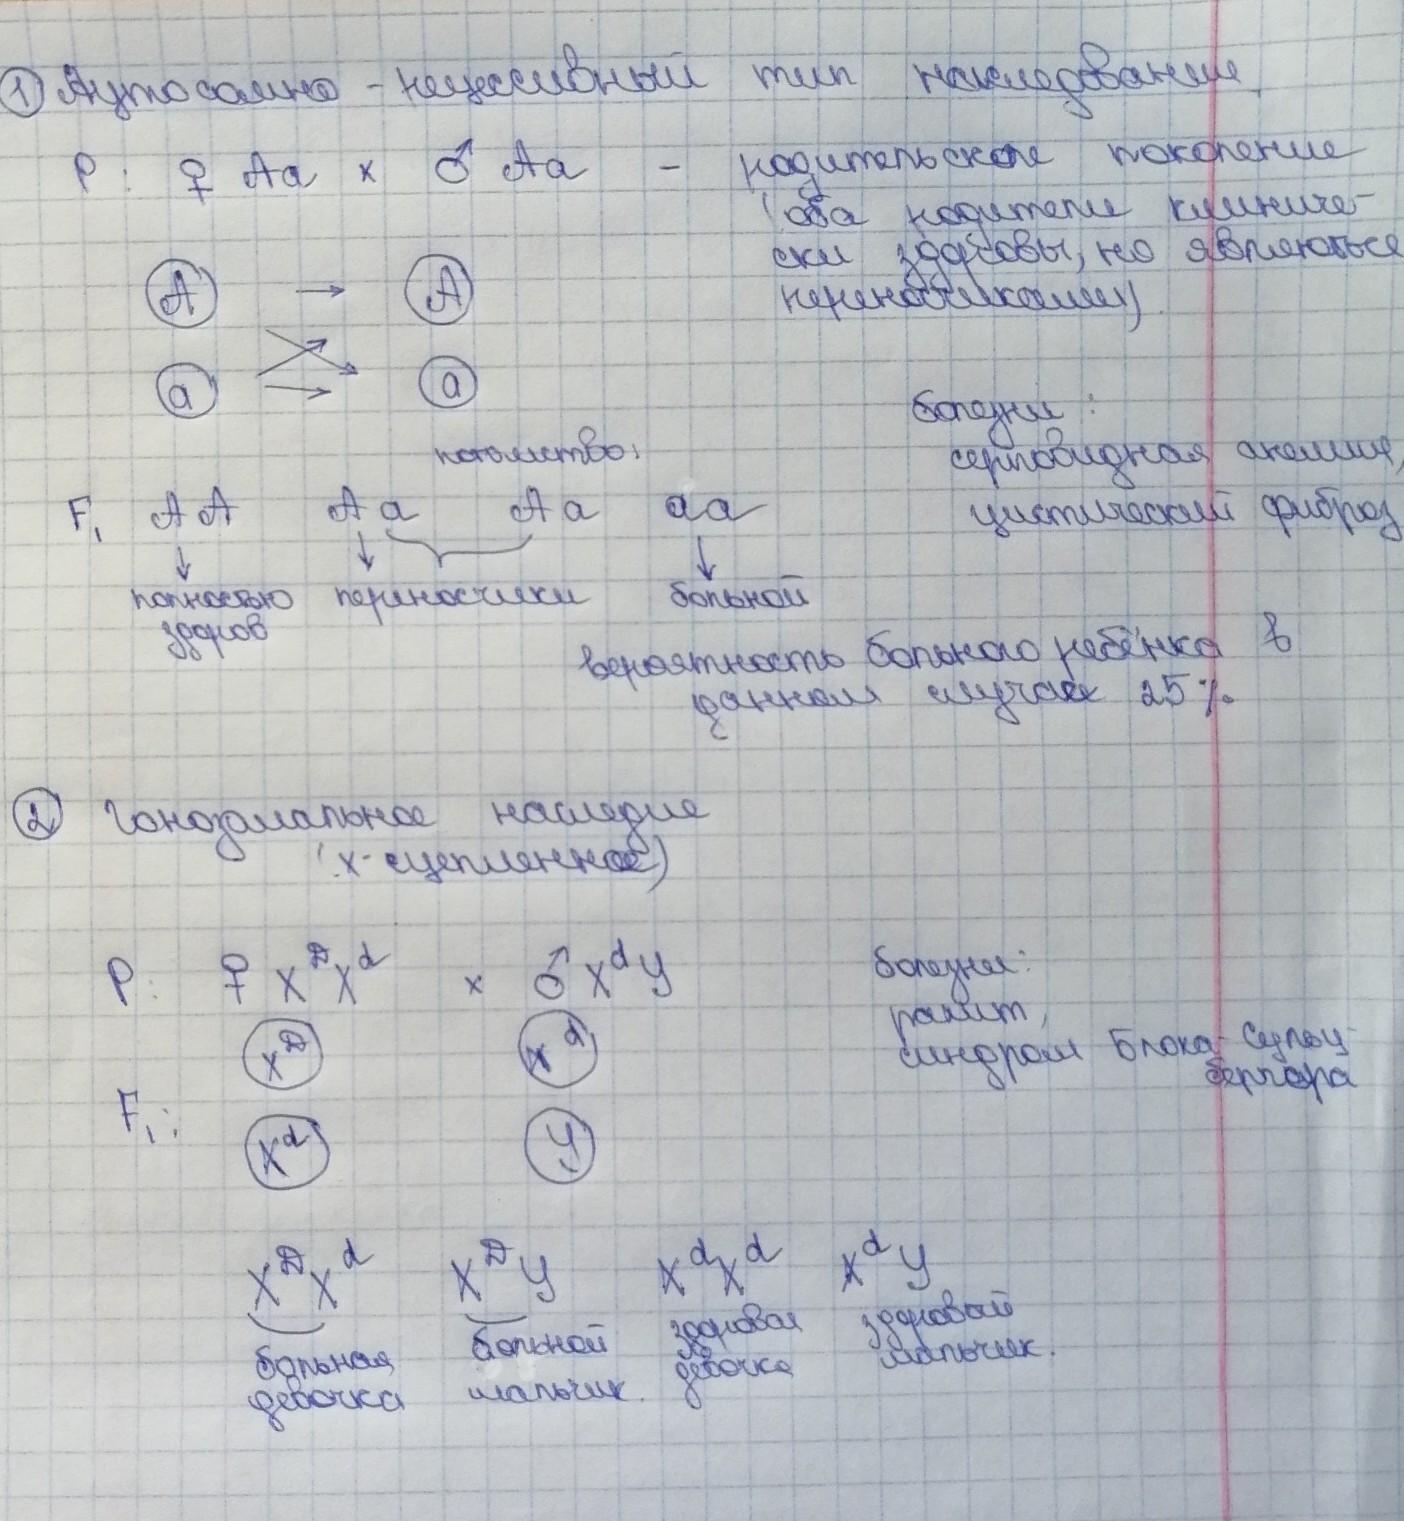 ① Аутосомно - рецессивный тип наследования
P: ♀ Aa x ♂ Aa - родительское поколение
(оба родителя клиниче-
ски здоровы, но являються
переносчиками)
A → A
a a
болезни:
потомство:
серповидная анемия,
цистический фиброз
F₁ AA Aa Aa aa
полностью переносчики больной
здоров
вероятность больного ребёнка в
данном случае 25%
② Гонозомальное наследие
(х-сцепленное)
P: ♀ XᴰXᵈ x ♂ XᵈY
болезни:
рахит,
синдром Блоха-Сульц-
бергера
Xᴰ Xᵈ
F₁:
Xᵈ Y
XᴰXᵈ XᴰY XᵈXᵈ XᵈY
больная больной здоровая здоровый
девочка мальчик. девочка мальчик.